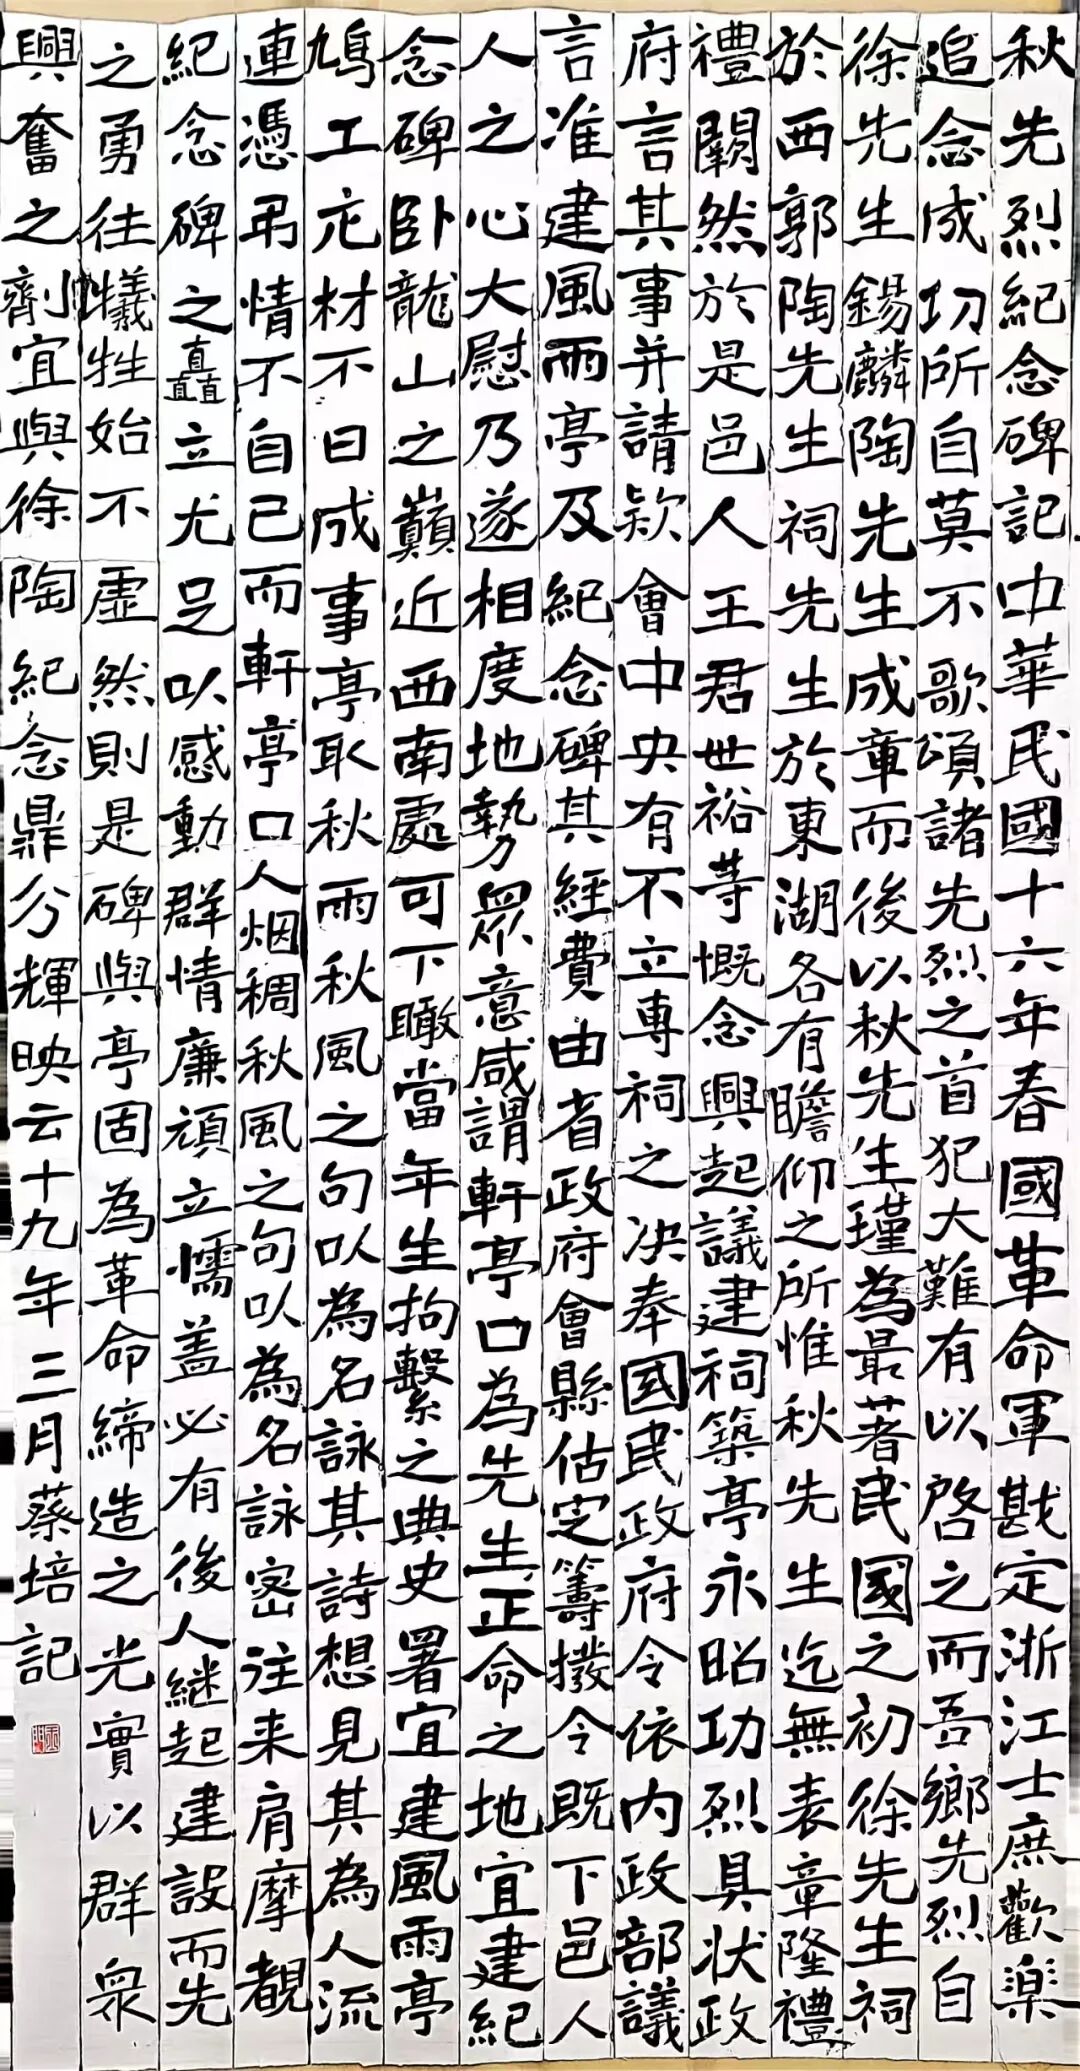 秋先烈紀念碑記中華民國十六年春國革命軍戡定浙江士庶歡樂
追念成功所自莫不歌頌諸先烈之首犯大難有以啓之而吾鄉先烈自
徐先生錫麟陶先生成章而後以秋先生瑾為最著民國之初徐先生祠
於西郭陶先生祠先生於東湖各有瞻仰之所惟秋先生迄無表章隆禮
禮闕然於是邑人王君世裕等慨念興起議建祠築亭永昭功烈具状政
府言其事并請款會中央有不立專祠之决奉國民政府令依内政部議
言准建風雨亭及紀念碑其經費由省政府會縣估定籌撥令既下邑人
人之心大慰乃遂相度地勢眾意咸謂軒亭口為先生正命之地宜建紀
念碑卧龍山之巔近西南處可下瞰當年生拘繫之典史署宜建風雨亭
鳩工庀材不日成事亭取秋雨秋風之句以為名詠其詩想見其為人流
連憑弔情不自已而軒亭口人烟稠秋風之句以為名詠密往来肩摩覩
紀念碑之矗立尤足以感動群情廉頑立懦盖必有後人継起建設而先
之勇往犧牲始不虚然則是碑與亭固為革命締造之光實以群眾
興奮之劑宜與徐陶紀念鼎分輝映云十九年三月蔡培記